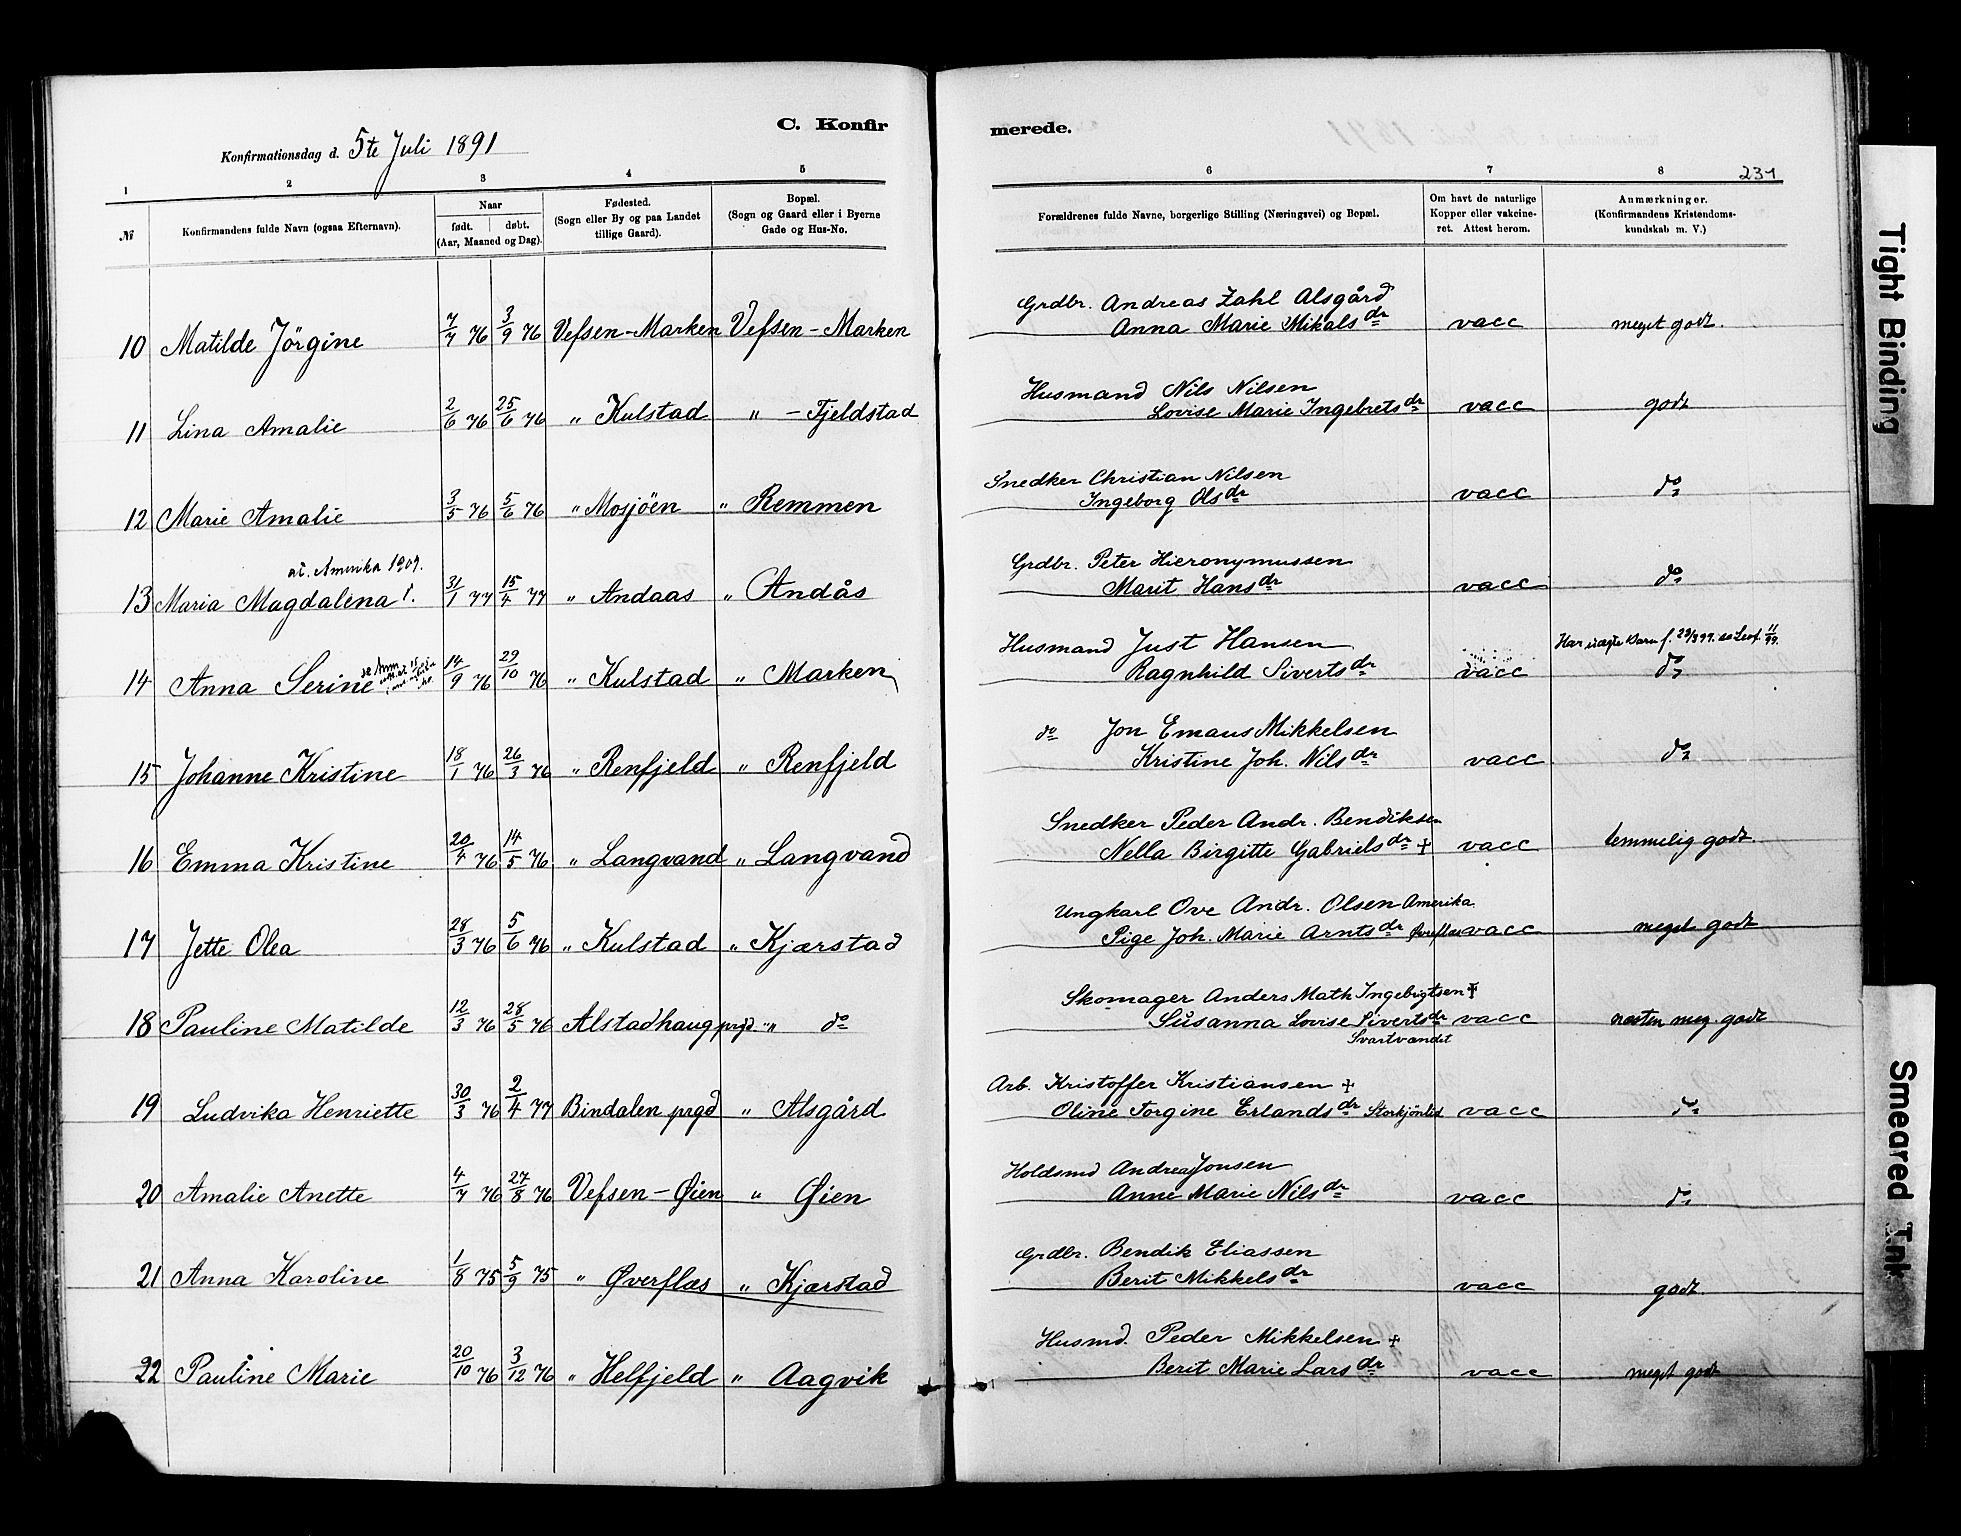 C. Konfir
merede.
Konfirmationsdag d. 5te Juli 1891
231
1 2 3 4 5 6 7 8
№
Konfirmandens fulde Navn (ogsaa Efternavn).
Naar
født. døbt.
(Aar, Maaned og Dag).
Fødested.
(Sogn eller By og paa Landet
tillige Gaard).
Bopæl.
(Sogn og Gaard eller i Byerne
Gade og Hus-No.
Forældrenes fulde Navne, borgerlige Stilling (Næringsvei) og Bopæl.
Om havt de naturlige
Kopper eller vakcine-
ret. Attest herom.
Anmærkninger.
(Konfirmandens Kristendoms-
kundskab m. V.)
Grdbr. Andreas Zahl Alsgård
10 Matilde Jörgine 7/7 76 3/9 76 Vefsen-Marken Vefsen-Marken Anna Marie Mikalsdr vacc meget godt.
Husmand Nils Nilsen
11 Lina Amalie 2/6 76 25/6 76 " Kulstad " - Fjeldstad Lovise Marie Ingebretsdr vacc godt
Snedker Christian Nilsen
12 Marie Amalie 3/5 76 5/6 76 " Mosjöen " Remmen Ingeborg Olsdr vacc do
at. Amerika 1909.
Grdbr. Peter Hieronymussen
13 Maria Magdalena 31/1 77 15/4 77 " Andaas " Andås Marit Hansdr vacc do
Husmand Just Hansen Har uægte Barn f. 29/3 99. se 11/99.
14 Anna Serine 14/9 76 29/10 76 " Kulstad " Marken Ragnhild Sivertsdr vacc do
do Jon Emaus Mikkelsen
15 Johanne Kristine 18/1 76 26/3 76 " Renfjeld " Renfjeld Kristine Joh. Nilsdr vacc do
Snedker Peder Andr. Bendiksen
16 Emma Kristine 20/4 76 14/5 76 " Langvand " Langvand Nella Birgitte Gabrielsdr + vacc temmelig godt.
Ungkarl Ove Andr. Olsen Amerika
17 Jette Olea 28/3 76 5/6 76 " Kulstad " Kjærstad Pige Joh. Marie Arntsdr Øverflæs vacc meget godt
Skomager Anders Math Ingebrigtsen +
18 Pauline Matilde 12/3 76 28/5 76 Alstadhaug prgd " do Susanna Lovise Sivertsdr vacc næsten meg. godt
Svartvandet
Arb. Kristoffer Kristiansen +
19 Ludvika Henriette 30/3 76 2/4 77 Bindalen prgd " Alsgård Oline Torgine Erlandsdr vacc do
Holdsmd Andreas Jonsen
20 Amalie Anette 4/7 76 27/8 76 Vefsen-Øien " Øien Anne Marie Nilsdr vacc do
Grdbr. Bendik Eliassen
21 Anna Karoline 1/8 75 5/9 75 " Øverflæs " Kjærstad Berit Mikkelsdr vacc godt.
Husmd. Peder Mikkelsen +
22 Pauline Marie 20/10 76 3/12 76 " Helfjeld " Aagvik Berit Marie Larsdr vacc meget godt
Tight Binding
Smeared Ink